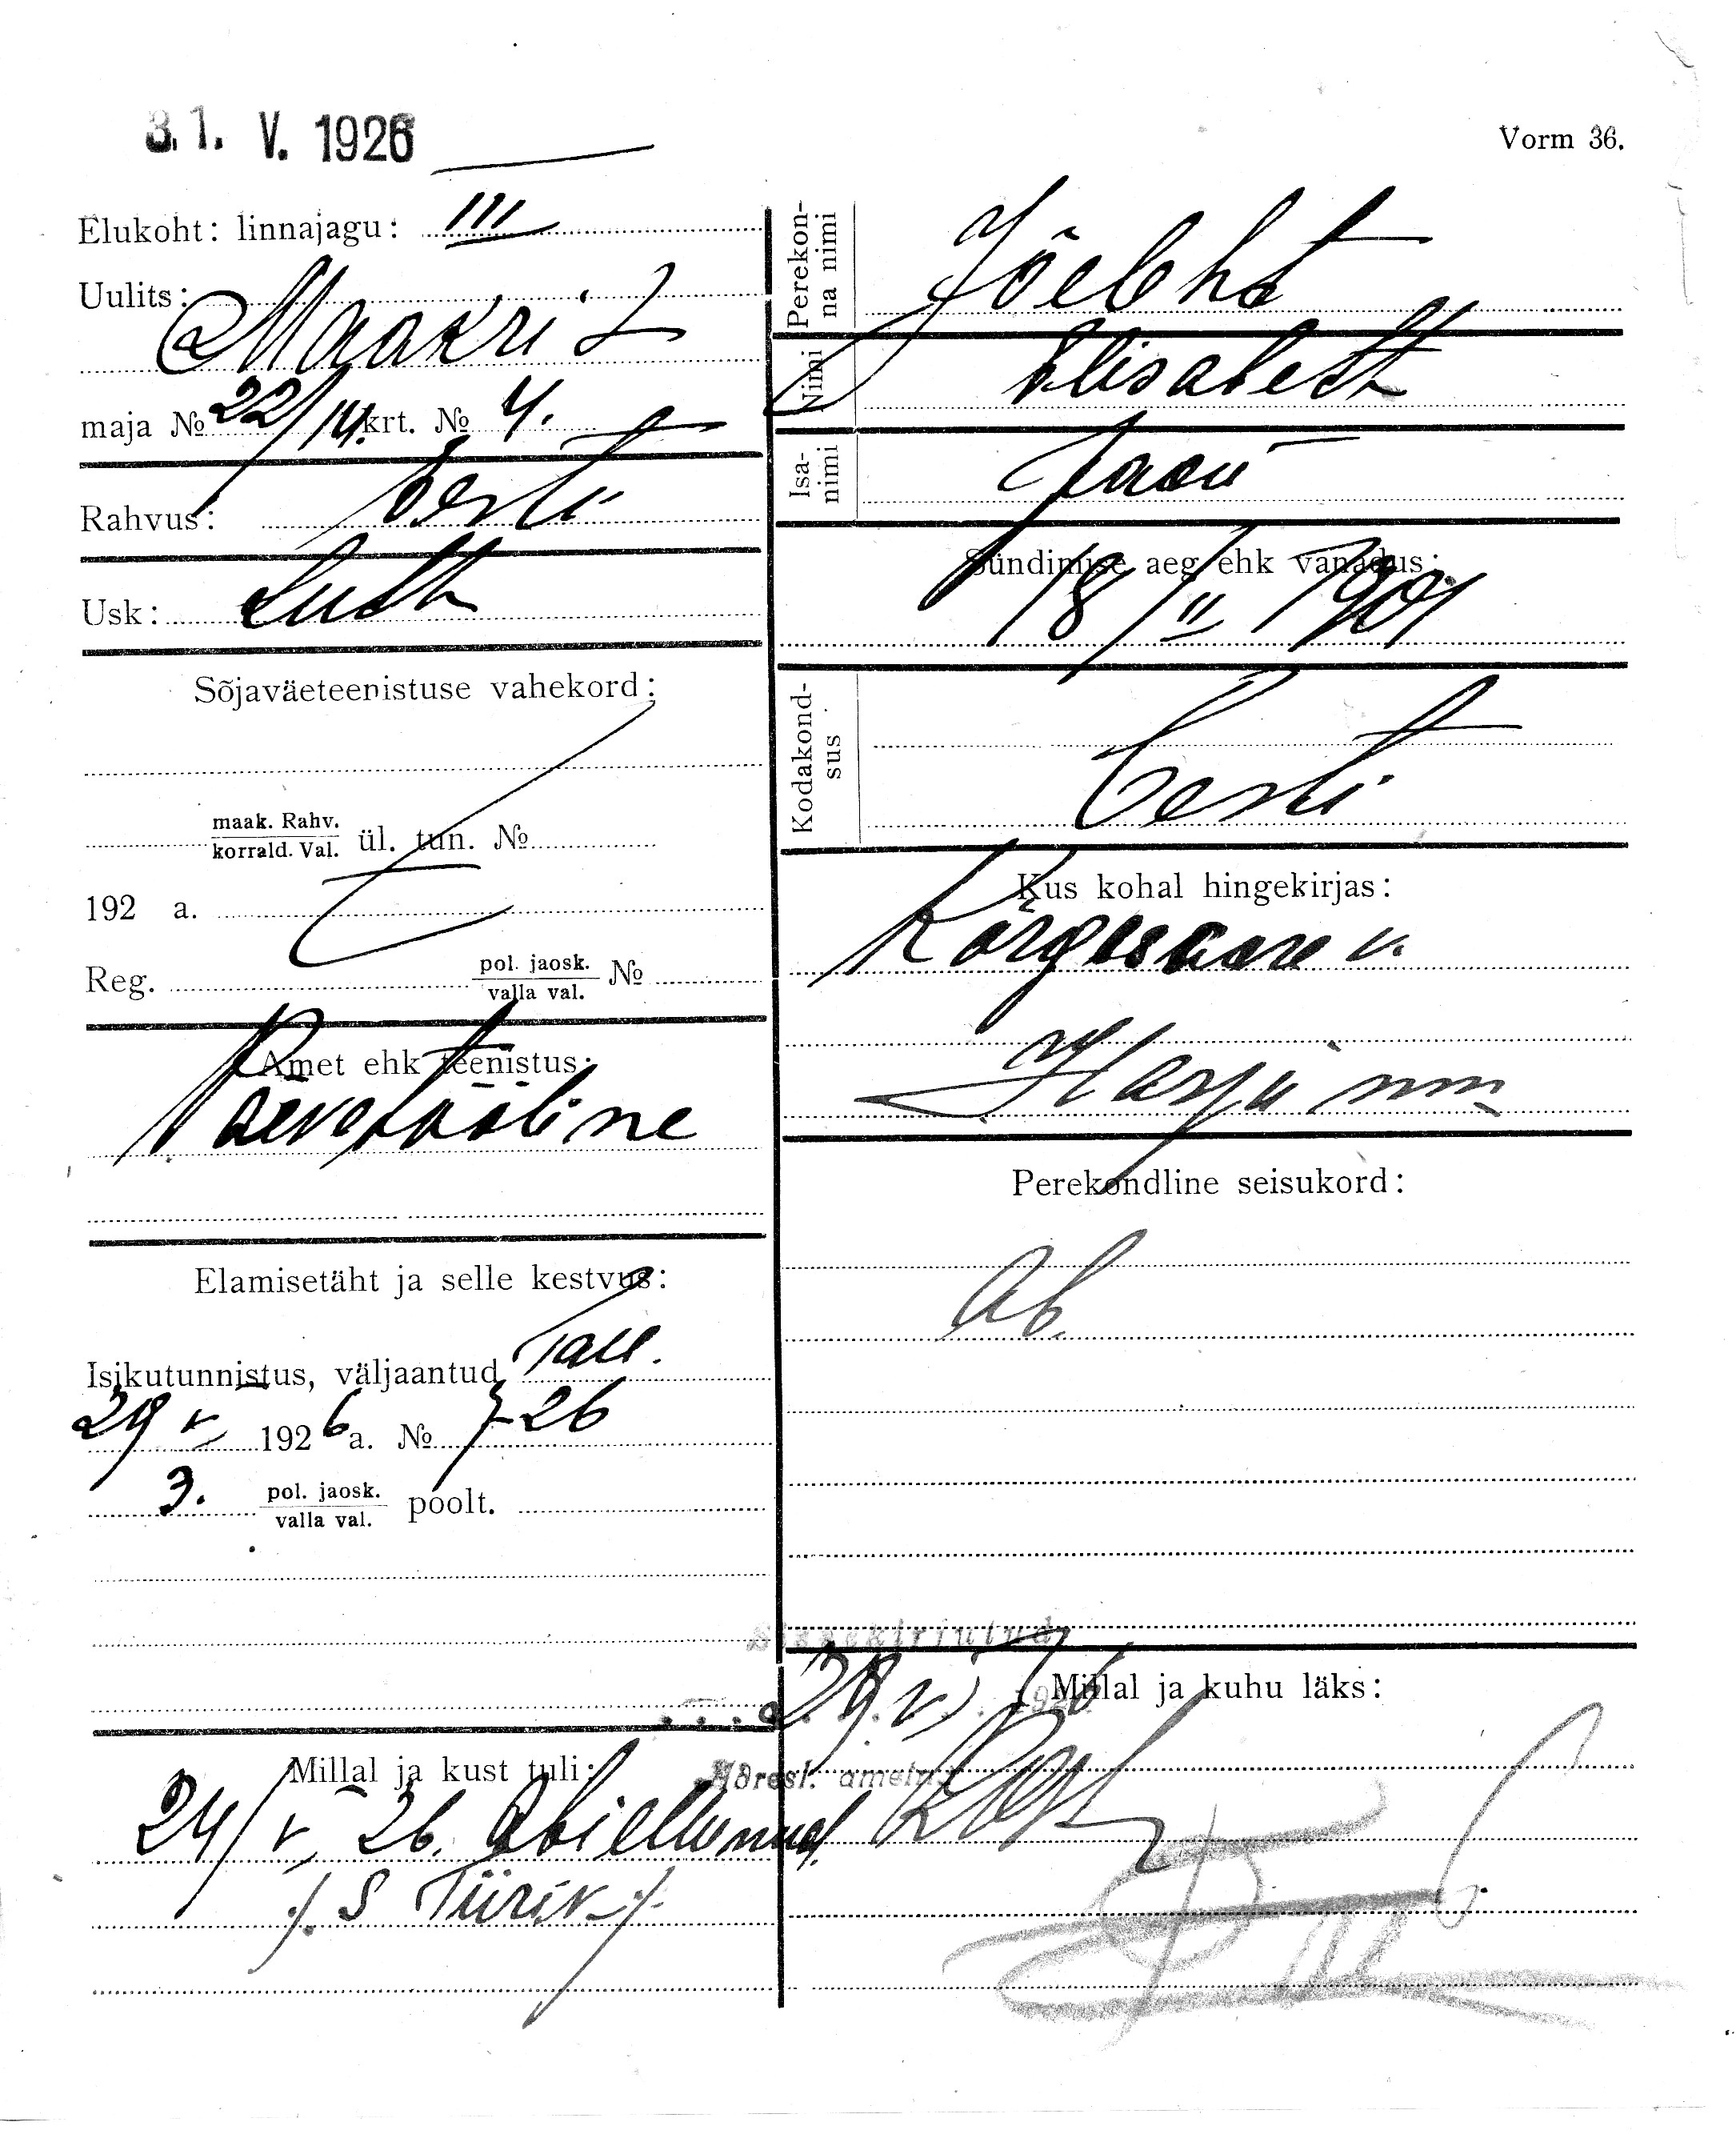 31. V. 1926
Vorm 36.
Elukoht: linnajagu: III
Uulits:
Maakri
maja № 22/14. krt. № 4.
Rahvus: Eesti
Usk: Luth
Sõjaväeteenistuse vahekord:
maak. Rahv.
korrald. Val. ül. tun. №
192 a.
Reg. pol. jaosk. №
valla val.
Amet ehk teenistus:
Päevatööline
Elamisetäht ja selle kestvus:
Isikutunnistus, väljaantud Tall.
29 V 1926 a. № 726
3. pol. jaosk. poolt.
valla val.
Millal ja kust tuli:
24/V 26. Abiellunud.
/. S Türk /.
Perekonna nimi Jõeleht
Nimi Elisabeth
Isanimi Jaan
Sündimise aeg ehk vanadus:
18/II 1901
Kodakondsus Eesti
Kus kohal hingekirjas:
Kõrgessaare v.
Harju mm
Perekondline seisukord:
Ab.
Sissekirjutud
29. V 1926
Adresl. ametn.
Millal ja kuhu läks: